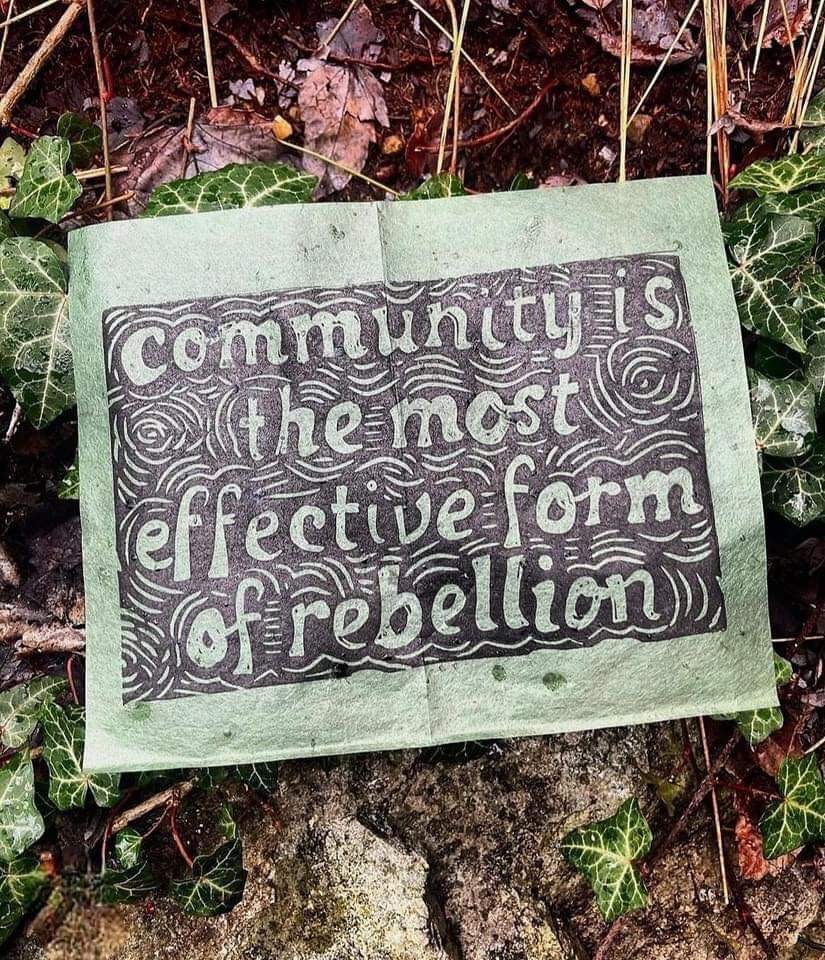 community is
the most
effective form
of rebellion